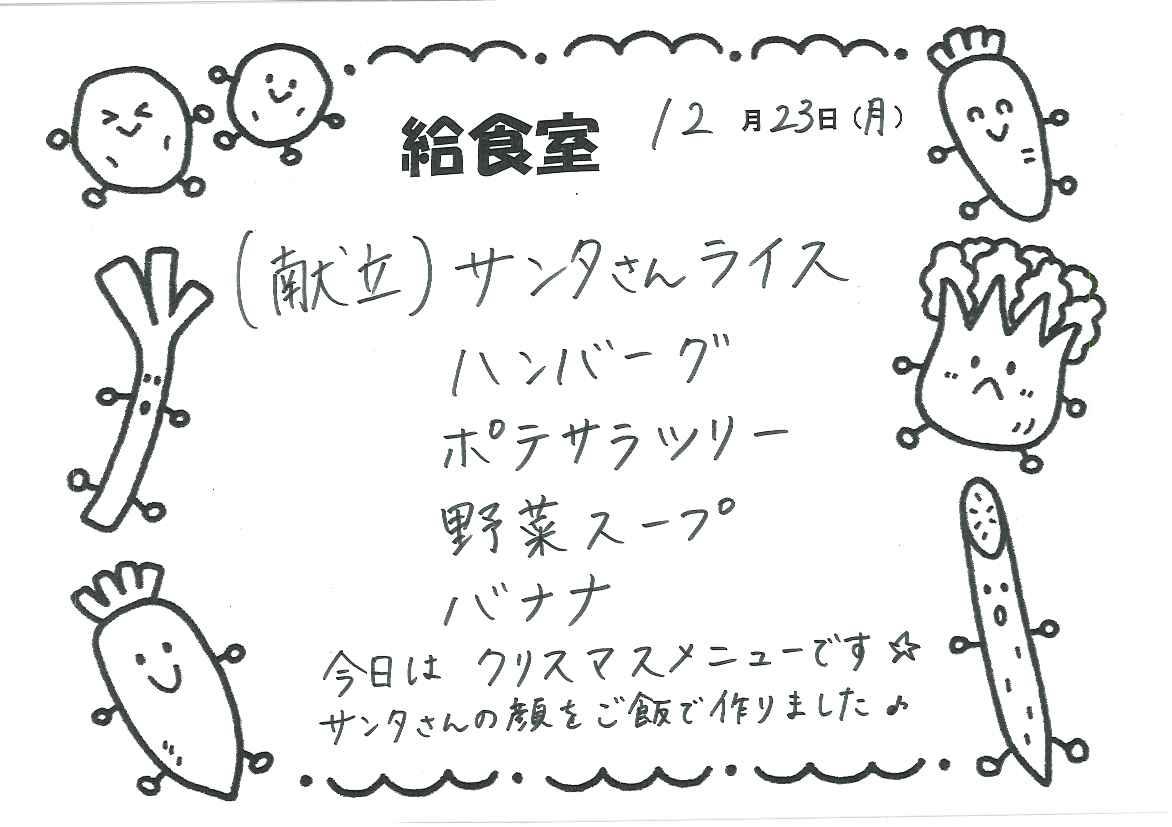 給食室 12月23日(月)
(献立)サンタさんライス
ハンバーグ
ポテサラツリー
野菜スープ
バナナ
今日は クリスマスメニューです☆
サンタさんの顔をご飯で作りました♪